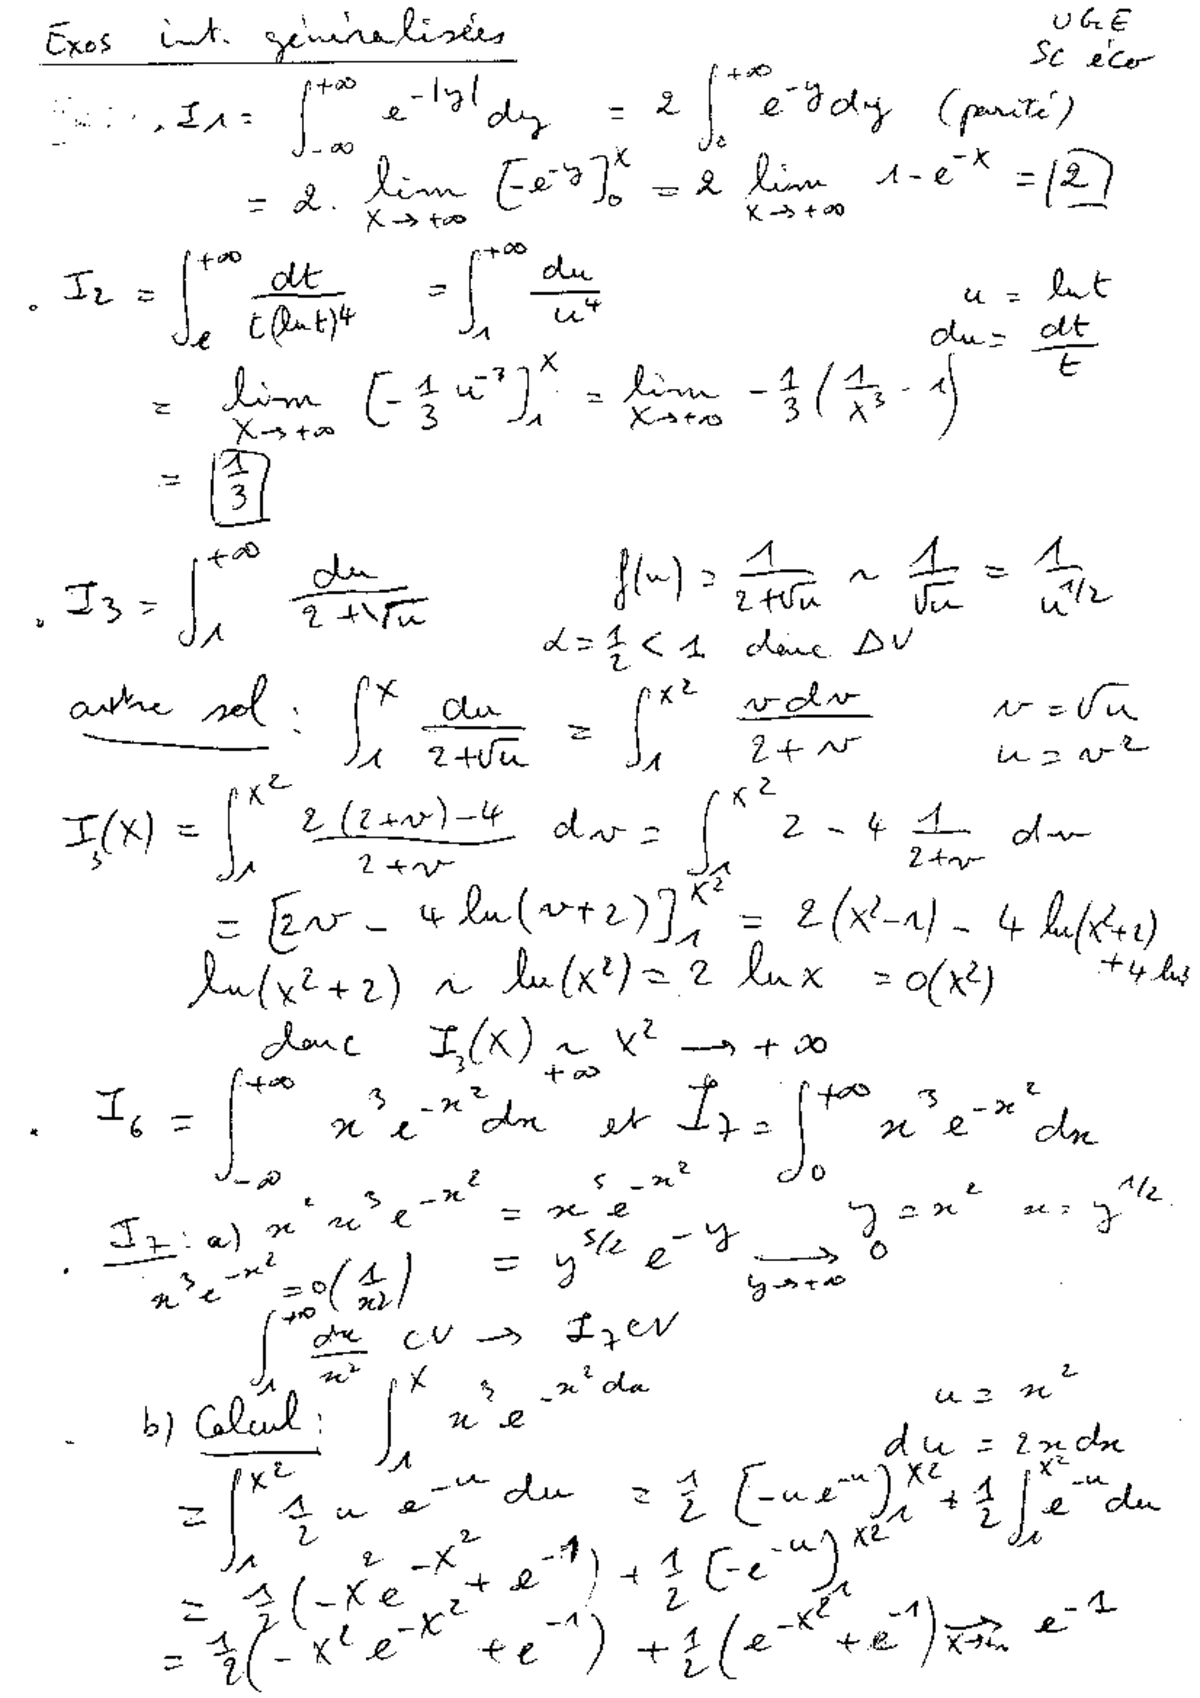 Exos int. généralisées
UGE
Sc éco
. I1 = ∫_{-∞}^{+∞} e^{-|y|} dy = 2 ∫_0^{+∞} e^{-y} dy (parité)
= 2. lim_{X→+∞} [-e^{-y}]_0^X = 2 lim_{X→+∞} 1-e^{-X} = 2
. I2 = ∫_e^{+∞} dt/(t(ln t)^4) = ∫_1^{+∞} du/u^4 u = ln t
du = dt/t
= lim_{X→+∞} [-1/3 u^{-3}]_1^X = lim_{X→+∞} -1/3 (1/X^3 - 1)
= 1/3
. I3 = ∫_1^{+∞} du/(2+√u) f(u) = 1/(2+√u) ~ 1/√u = 1/u^{1/2}
α = 1/2 < 1 donc DV
autre sol : ∫_1^X du/(2+√u) = ∫_1^{X^2} v dv/(2+v) v = √u
u = v^2
I_3(X) = ∫_1^{X^2} (2(2+v)-4)/(2+v) dv = ∫_1^{X^2} 2 - 4 1/(2+v) dv
= [2v - 4 ln(v+2)]_1^{X^2} = 2(X^2-1) - 4 ln(X^2+2)
+4 ln3
ln(X^2+2) ~ ln(X^2) = 2 ln X = o(X^2)
donc I_3(X) ~_{+∞} X^2 → +∞
. I_6 = ∫_{-∞}^{+∞} x^3 e^{-x^2} dx et I_7 = ∫_0^{+∞} x^3 e^{-x^2} dx
. I_7 : a) x^2 x^3 e^{-x^2} = x^5 e^{-x^2} y = x^2 x = y^{1/2}
= y^{5/2} e^{-y} →_{y→+∞} 0
x^3 e^{-x^2} = o(1/x^2)
∫_1^{+∞} dx/x^2 CV → I_7 CV
b) Calcul : ∫_1^X x^3 e^{-x^2} dx u = x^2
du = 2x dx
= ∫_1^{X^2} 1/2 u e^{-u} du = 1/2 [-u e^{-u}]_1^{X^2} + 1/2 ∫_1^{X^2} e^{-u} du
= 1/2 (-X^2 e^{-X^2} + e^{-1}) + 1/2 [-e^{-u}]_1^{X^2}
= 1/2 (-X^2 e^{-X^2} + e^{-1}) + 1/2 (e^{-X^2} + e^{-1}) →_{X→+∞} e^{-1}